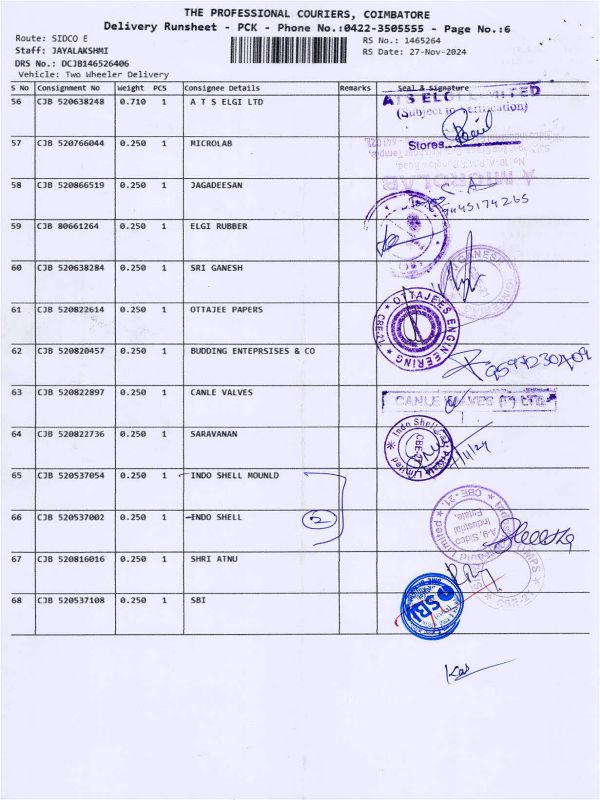 THE PROFESSIONAL COURIERS, COIMBATORE
Delivery Runsheet - PCK - Phone No.:0422-3505555 - Page No.:6
Route: SIDCO E
RS No.: 1465264
Staff: JAYALAKSHMI
RS Date: 27-Nov-2024
DRS No: DCJB146526406
Vehicle: Two Wheeler Delivery
S No Consignment No Weight PCS Consignee Details Remarks Seal & Signature
56 CJB 520638248 0.710 1 A T S ELGI LTD
ATS ELGI LIMITED
(Subject to Verification)
Stores
57 CJB 520766044 0.250 1 MICROLAB
MICROLAB
58 CJB 520866519 0.250 1 JAGADEESAN
9445174265
59 CJB 80661264 0.250 1 ELGI RUBBER
60 CJB 520638284 0.250 1 SRI GANESH
GANESH
61 CJB 520822614 0.250 1 OTTAJEE PAPERS
OTTAJEES ENGINEERING
CBE-21
62 CJB 520820457 0.250 1 BUDDING ENTEPRSISES & CO
63 CJB 520822897 0.250 1 CANLE VALVES
CANLE VALVES (P) LTD
64 CJB 520822736 0.250 1 SARAVANAN
Indo Shell
Private Limited
CBE-21
65 CJB 520537054 0.250 1 INDO SHELL MOUNLD
66 CJB 520537002 0.250 1 INDO SHELL 2
CBE-21.
A-9, Sidco
Industrial
Estate,
67 CJB 520816016 0.250 1 SHRI ATNU
PUMPS
CBE-21
68 CJB 520537108 0.250 1 SBI
SBI